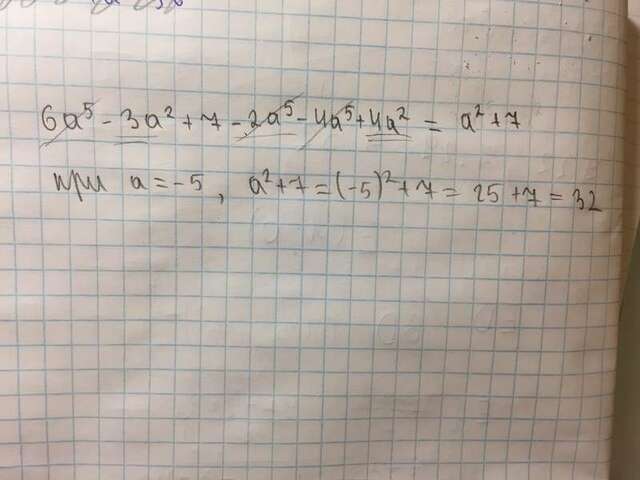 6a⁵ - 3a² + 7 - 2a⁵ - 4a⁵ + 4a² = a² + 7
при a = -5, a² + 7 = (-5)² + 7 = 25 + 7 = 32